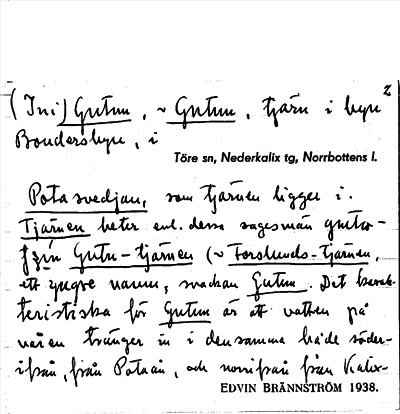 2
(Ini) Gutun, ~ Gutun, tjärn i byn
Bondersbyn, i
Töre sn, Nederkalix tg, Norrbottens l.
Potasvedjan, som tjärnen ligger i.
Tjärnen heter enl. dessa sagesmän
Gutu-tjärnen (~ Forslunds-tjärnen,
ett yngre namn, svackan Gutun. Det karak-
teristiska för Gutun är att vatten på
våren tränger in i densamma både söder-
ifrån, från Potaån, och norrifrån från Kalix-
EDVIN BRÄNNSTRÖM 1938.